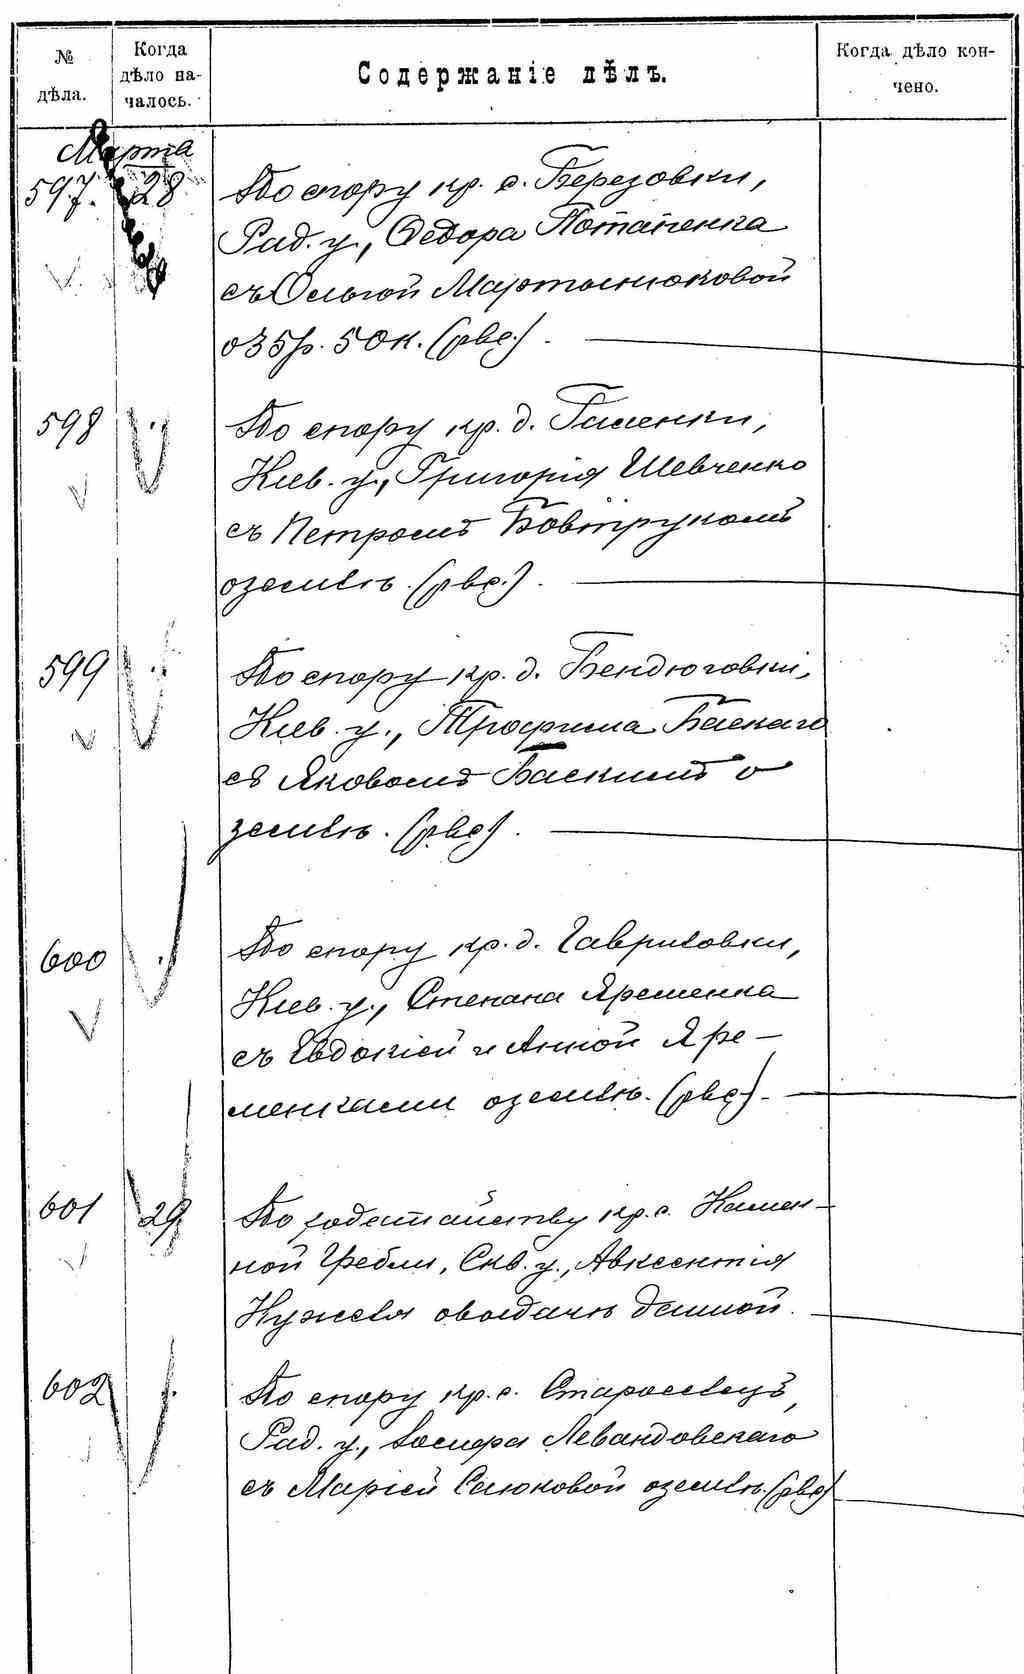 № дѣла.
Когда дѣло на-
чалось.
Содержаніе дѣлъ.
Когда дѣло кон-
чено.
Марта
597. 28 По спору кр. с. Березовки,
Рад. у., Ѳедора Потапенка
съ Ольгой Мартынюковой
о 35 р. 50 к. (рвс.)
598 " По спору кр. д. Гиленки,
Кіев. у., Григорія Шевченко
съ Петромъ Бовтрукомъ
о землѣ. (рвс.)
599 " По спору кр. д. Бендюговки,
Кіев. у., Трофима Баскаго
съ Яковомъ Баскимъ о
землѣ. (рвс)
600 " По спору кр. д. Гавриловки,
Кіев. у., Степана Яременка
съ Евдокіей и Анной Яре-
менками о землѣ. (рвс)
601 29 По ходатайству кр. с. Камен-
ной Гребли, Скв. у., Авксентія
Кужеля о выдачѣ данной.
602 " По спору кр. с. Староселецъ,
Рад. у., Іосифа Левандовскаго
съ Маріей Сиюковой о землѣ. (рвс)